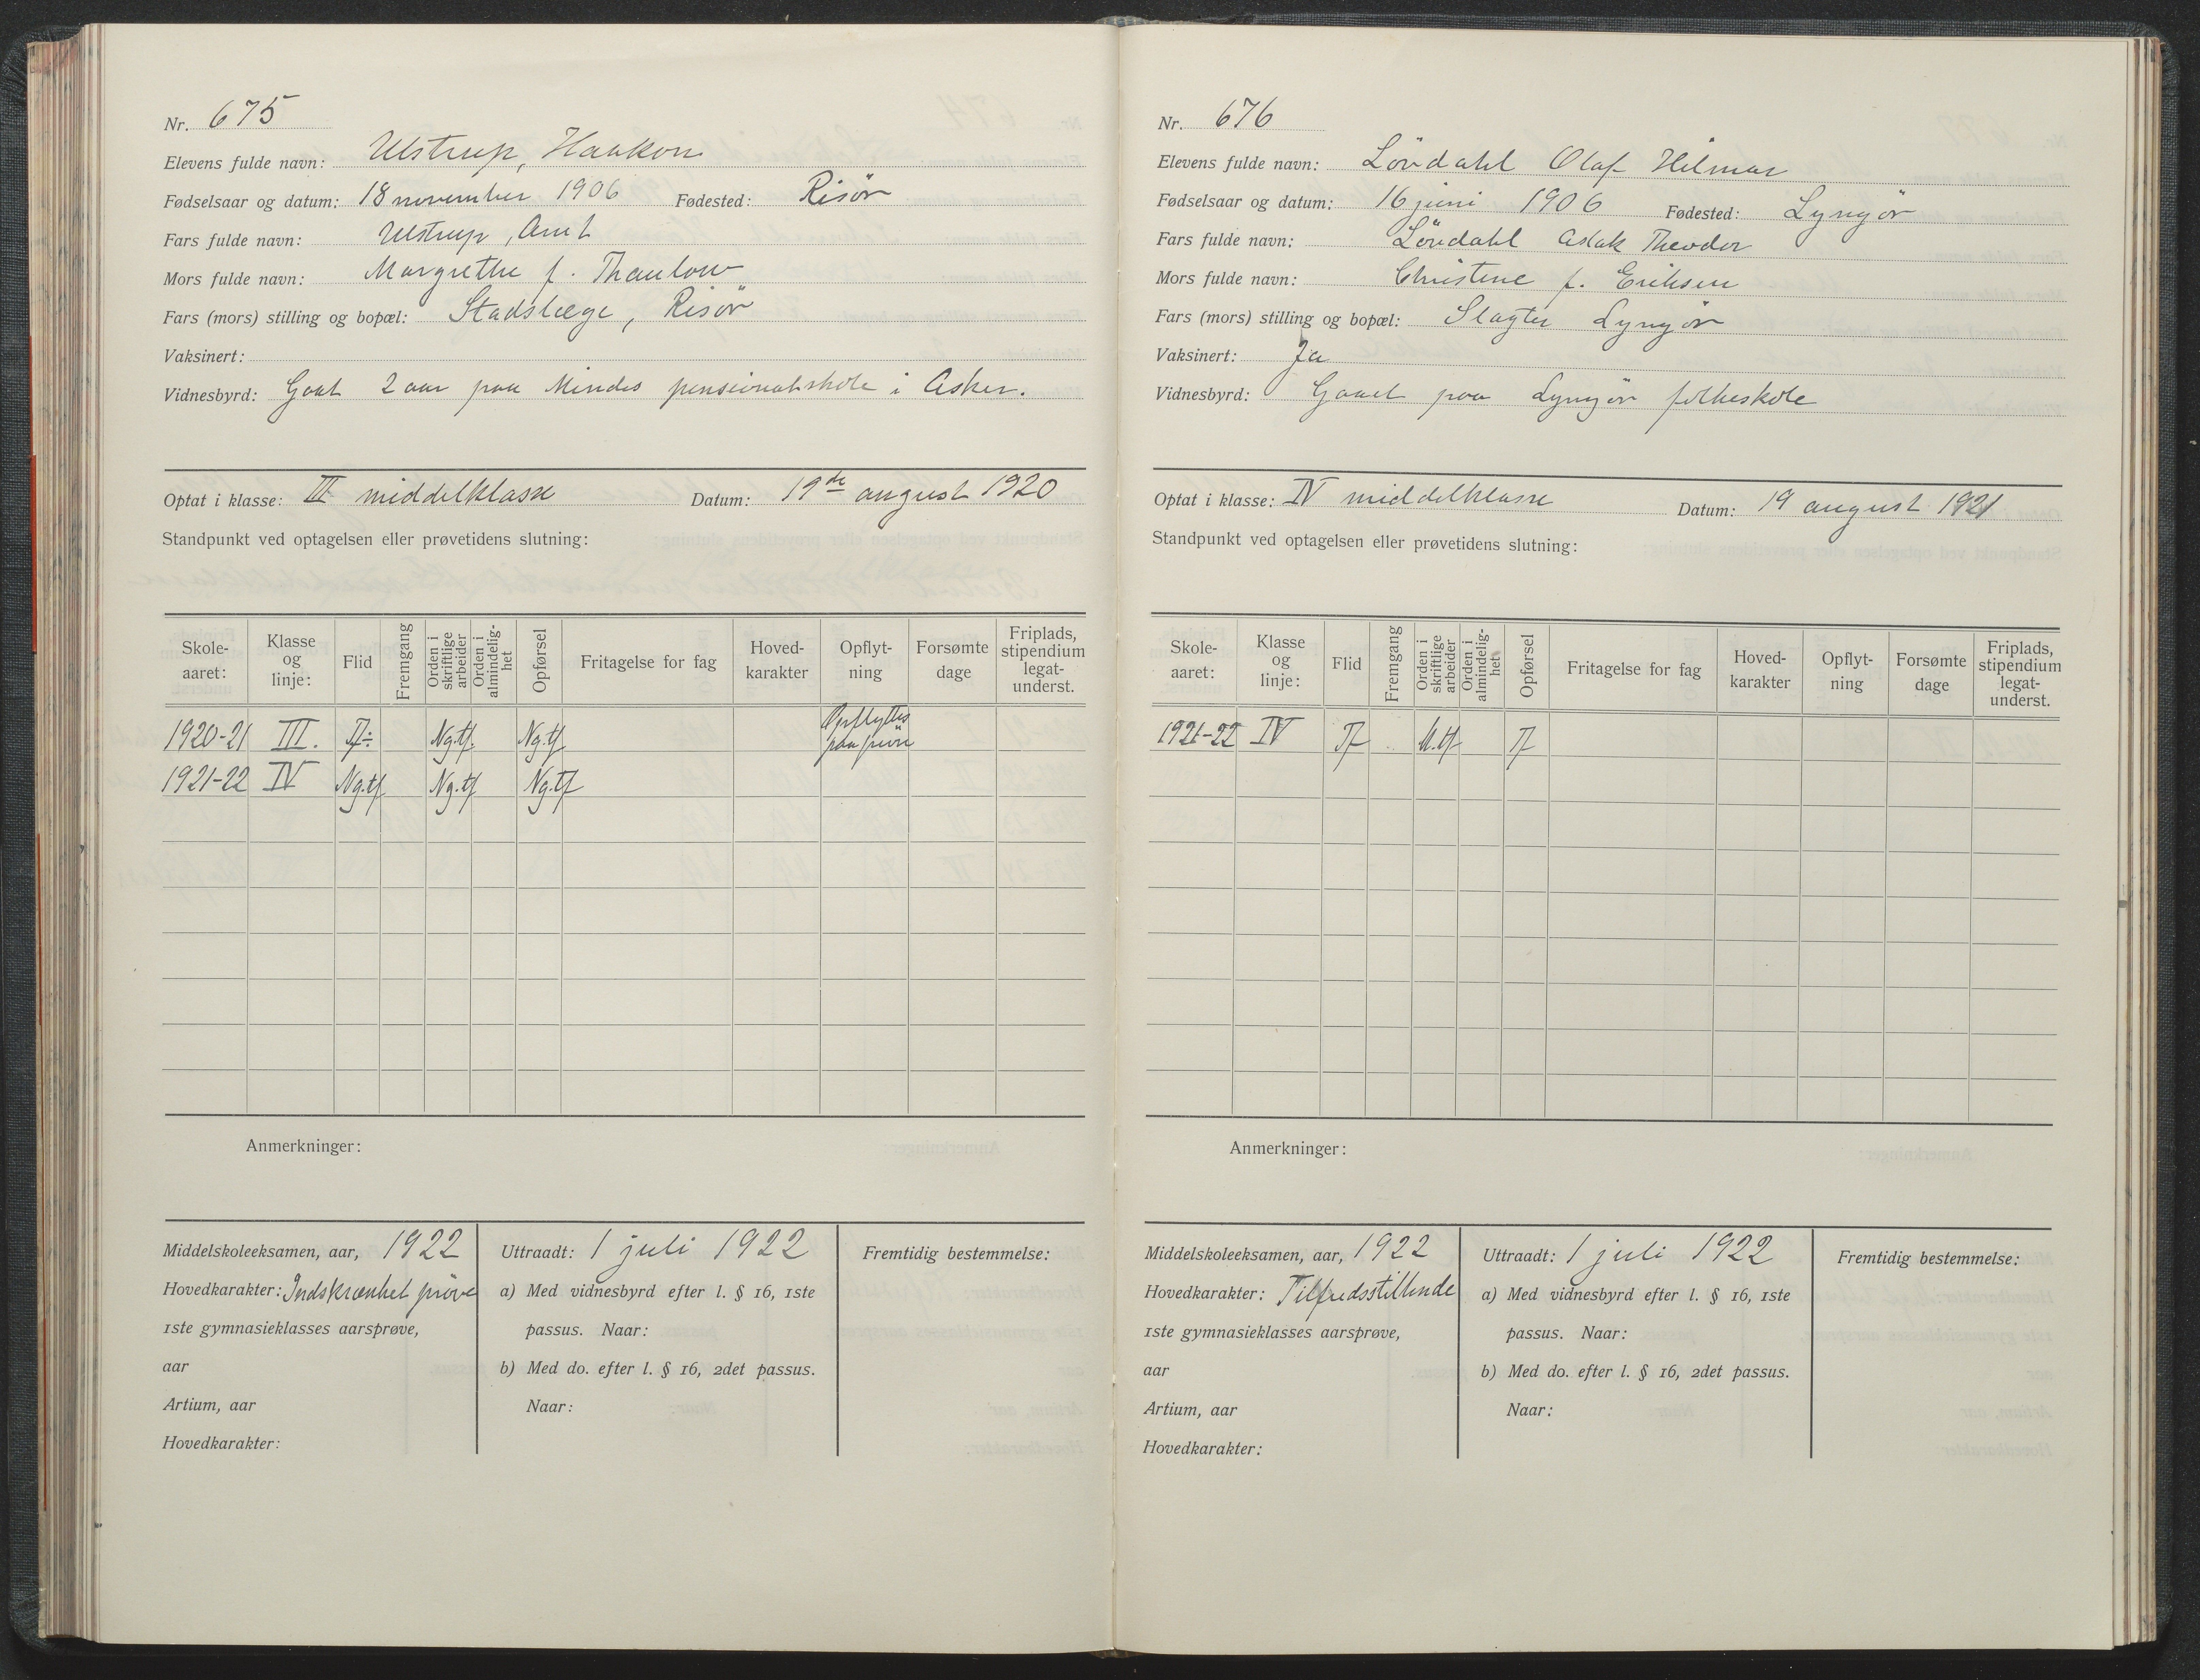 Nr. 675
Elevens fulde navn: Ulstrup, Haakon
Fødselsaar og datum: 18 november 1906 Fødested: Risör
Fars fulde navn: Ulstrup, Arnt
Mors fulde navn: Margrethe f. Thaulow
Fars (mors) stilling og bopæl: Stadslæge, Risör
Vaksinert:
Vidnesbyrd: Gaat 2 aar paa Mindes pensionatskole i Asker.
Optat i klasse: III middelklasse Datum: 19de august 1920
Standpunkt ved optagelsen eller prøvetidens slutning:
Skole-aaret: Klasse og linje: Flid Fremgang Orden i skriftlige arbeider Orden i almindelig-het Opførsel Fritagelse for fag Hoved-karakter Opflyt-ning Forsømte dage Friplads, stipendium legat-underst.
1920-21 III. Tf÷ Ng.tf. Ng.tf Opflyttes paa pröve
1921-22 IV Ng.tf Ng.tf Ng.tf
Anmerkninger:
Middelskoleeksamen, aar, 1922
Hovedkarakter: Indskrænket pröve
1ste gymnasieklasses aarsprøve,
aar
Artium, aar
Hovedkarakter:
Uttraadt: 1 juli 1922
a) Med vidnesbyrd efter l. § 16, 1ste
passus. Naar:
b) Med do. efter l. § 16, 2det passus.
Naar:
Fremtidig bestemmelse:
Nr. 676
Elevens fulde navn: Lövdahl Olaf Hilmar
Fødselsaar og datum: 16 juni 1906 Fødested: Lyngör
Fars fulde navn: Lövdahl Aslak Theodor
Mors fulde navn: Christine f. Eriksen
Fars (mors) stilling og bopæl: Slagter Lyngör
Vaksinert: Ja
Vidnesbyrd: Gaaet paa Lyngör folkeskole
Optat i klasse: IV middelklasse Datum: 19 august 1921
Standpunkt ved optagelsen eller prøvetidens slutning:
Skole-aaret: Klasse og linje: Flid Fremgang Orden i skriftlige arbeider Orden i almindelig-het Opførsel Fritagelse for fag Hoved-karakter Opflyt-ning Forsømte dage Friplads, stipendium legat-underst.
1921-22 IV Tf M.tf Tf
Anmerkninger:
Middelskoleeksamen, aar, 1922
Hovedkarakter: Tilfredsstillende
1ste gymnasieklasses aarsprøve,
aar
Artium, aar
Hovedkarakter:
Uttraadt: 1 juli 1922
a) Med vidnesbyrd efter l. § 16, 1ste
passus. Naar:
b) Med do. efter l. § 16, 2det passus.
Naar:
Fremtidig bestemmelse: